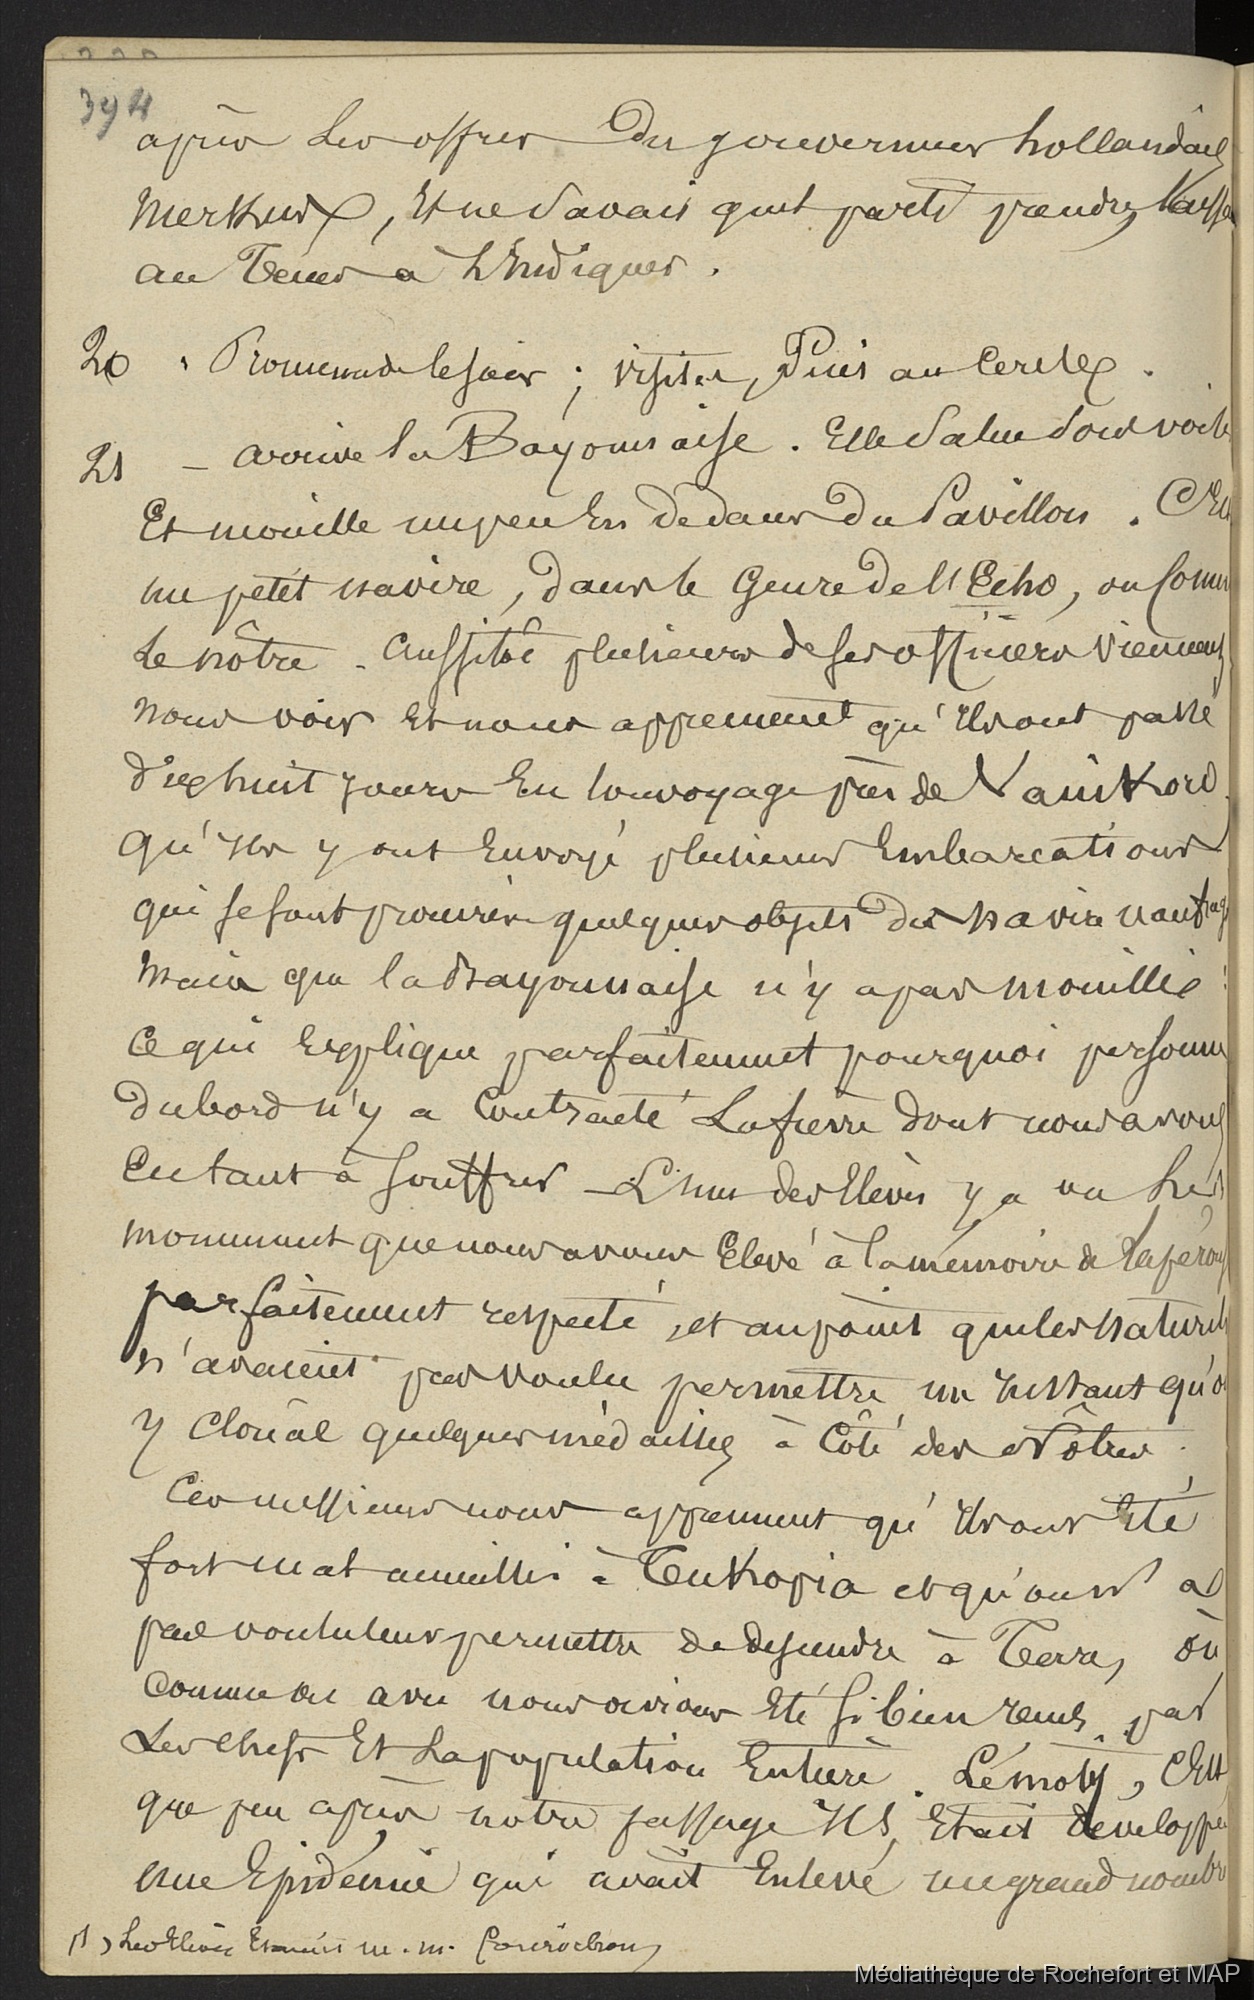 394
après les offres du gouverneur hollandais
Merkus, et ne savais quel parti prendre,
au Ténes à
20 . Promenade le soir ; visites, Puis au Cercle .
21 – arrive la Bayonnaise . Elle salue sous voile
Et mouille un peu En dedans du Pavillon . C'Est
un petit navire, dans le Genre de l'Echo, ou Comme
Le nôtre . Aussitôt plusieurs de ses officiers viennent
nous voir Et nous apprennent qu'Ils ont passé
dix huit jours En louvoyage près de Vanikoro.
qu'Ils y ont Envoyé plusieurs Embarcations
qui se sont procuré quelques objets du navire naufragé
Mais que la Bayonnaise n'y a pas mouillé :
Ce qui Explique parfaitement pourquoi personne
du bord n'y a Contracté La fièvre dont nous avons
Eu tant à souffrir – L'un des Elèves y a vu le (1)
monument que nous avions Elevé à la mémoire de Lapérouse
parfaitement respecté, et au point que les naturels
n'avaient pas voulu permettre un Instant qu'on
y clouât quelques médailles à Côté des Nôtres .
Ces messieurs nous apprennent qu'Ils ont Eté
fort mal accueillis à Tukopia et qu'on n'a
pas voulu leur permettre de descendre à Terre, où
comme on a vu nous avions Eté si bien reçus par
Les chefs Et La population Entière . Le motif, C'Est
que peu après notre passage Il s'Etait développé
une Epidémie qui avait Enlevé un grand nombre
(1) Les Elèves Etaient m. m.
Médiathèque de Rochefort et MAP